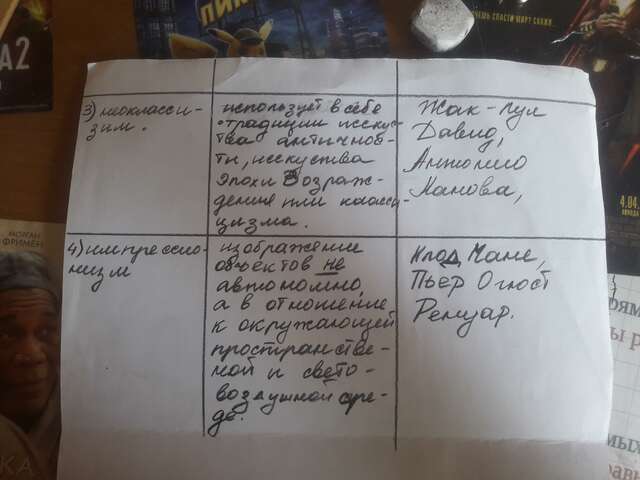 А2
ПИК
ЧЕМЬ СПАСТИ МАРТ СКАЛИ
3) неокласси-
зизм.
использует в себе
традиции исскус-
тва античнос-
ти, исскуства
эпохи Возраж-
дения или класси-
цизма.
Жак-Луи
Давид,
Антонио
Канова,
4) импрессио-
низм
изображение
объектов не
автономно,
а в отношение
к окружающей
пространстве-
ной и свето-
воздушной сре-
де.
Клод Мане,
Пьер Огюст
Ренуар.
4.04
МОРГАН
ФРИМЕН
КА